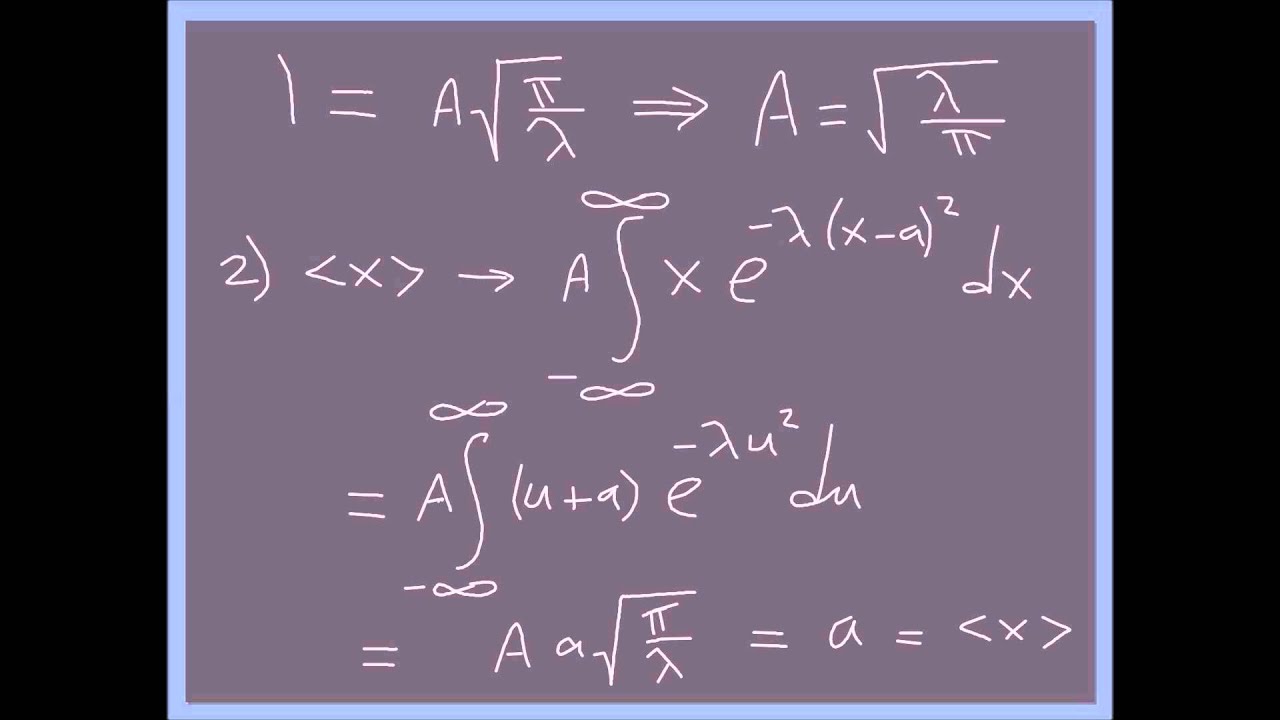 1 = A√(π/λ) ⇒ A = √(λ/π)
2) <x> → A ∫_{-∞}^{∞} x e^{-λ(x-a)²} dx
= A ∫_{-∞}^{∞} (u+a) e^{-λu²} du
= A a √(π/λ) = a = <x>